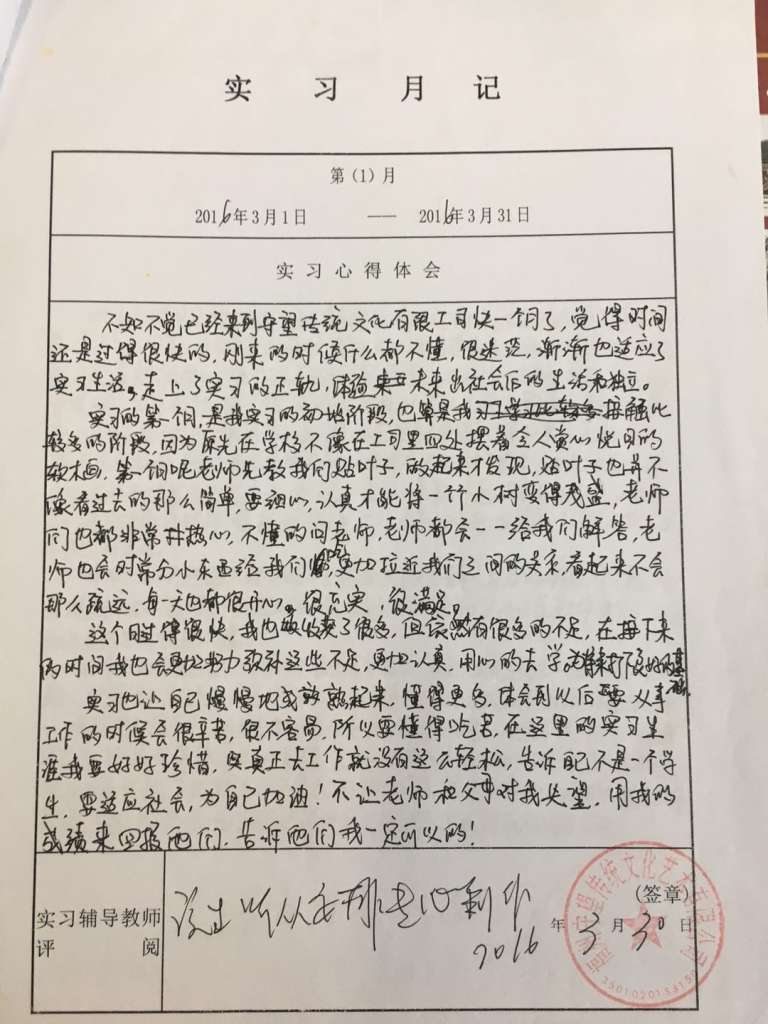 实 习 月 记
第(1)月
2016年3月1日 —— 2016年3月31日
实习心得体会
不知不觉已经来到守望传统文化有限公司快一个月了，觉得时间
还是过得很快的，刚来的时候什么都不懂，很迷茫，渐渐也适应了
实习生活。走上了实习的正轨，体验未来出社会后的生活和独立。
实习的第一个月，是我实习的初始阶段，也算是我接触比
较多的阶段，因为原先在学校不像在公司里四处摆着令人赏心悦目的
软木画，第一个月呢老师先教我们贴叶子，做起来才发现，贴叶子也并不
像看过去的那么简单，要细心，认真才能将一个小树变得茂盛，老师
们也都非常热心，不懂的问老师，老师都会一一给我们解答，老
师也会时常分小东西给我们吃，更加拉近我们之间的关系，看起来不会
那么疏远，每一天也都很开心。很充实，很满足。
这个月过得很快，我也收获了很多，但依然有很多的不足，在接下来
的时间我也会更加努力弥补这些不足，更加认真，用心的去学。为将来打下良好的基础。
实习也让自己慢慢地成熟起来，懂得更多，体会到以后要从事
工作的时候会很辛苦，很不容易，所以要懂得吃苦，在这里的实习生
涯我要好好珍惜，真正去工作就没有这么轻松，告诉自己不是一个学
生，要适应社会，为自己加油！不让老师和父母对我失望，用我的
成绩来回报他们，告诉他们我一定可以的！
实习辅导教师
评 阅
(签章)
2016 年 3 月 30 日
3501020153150